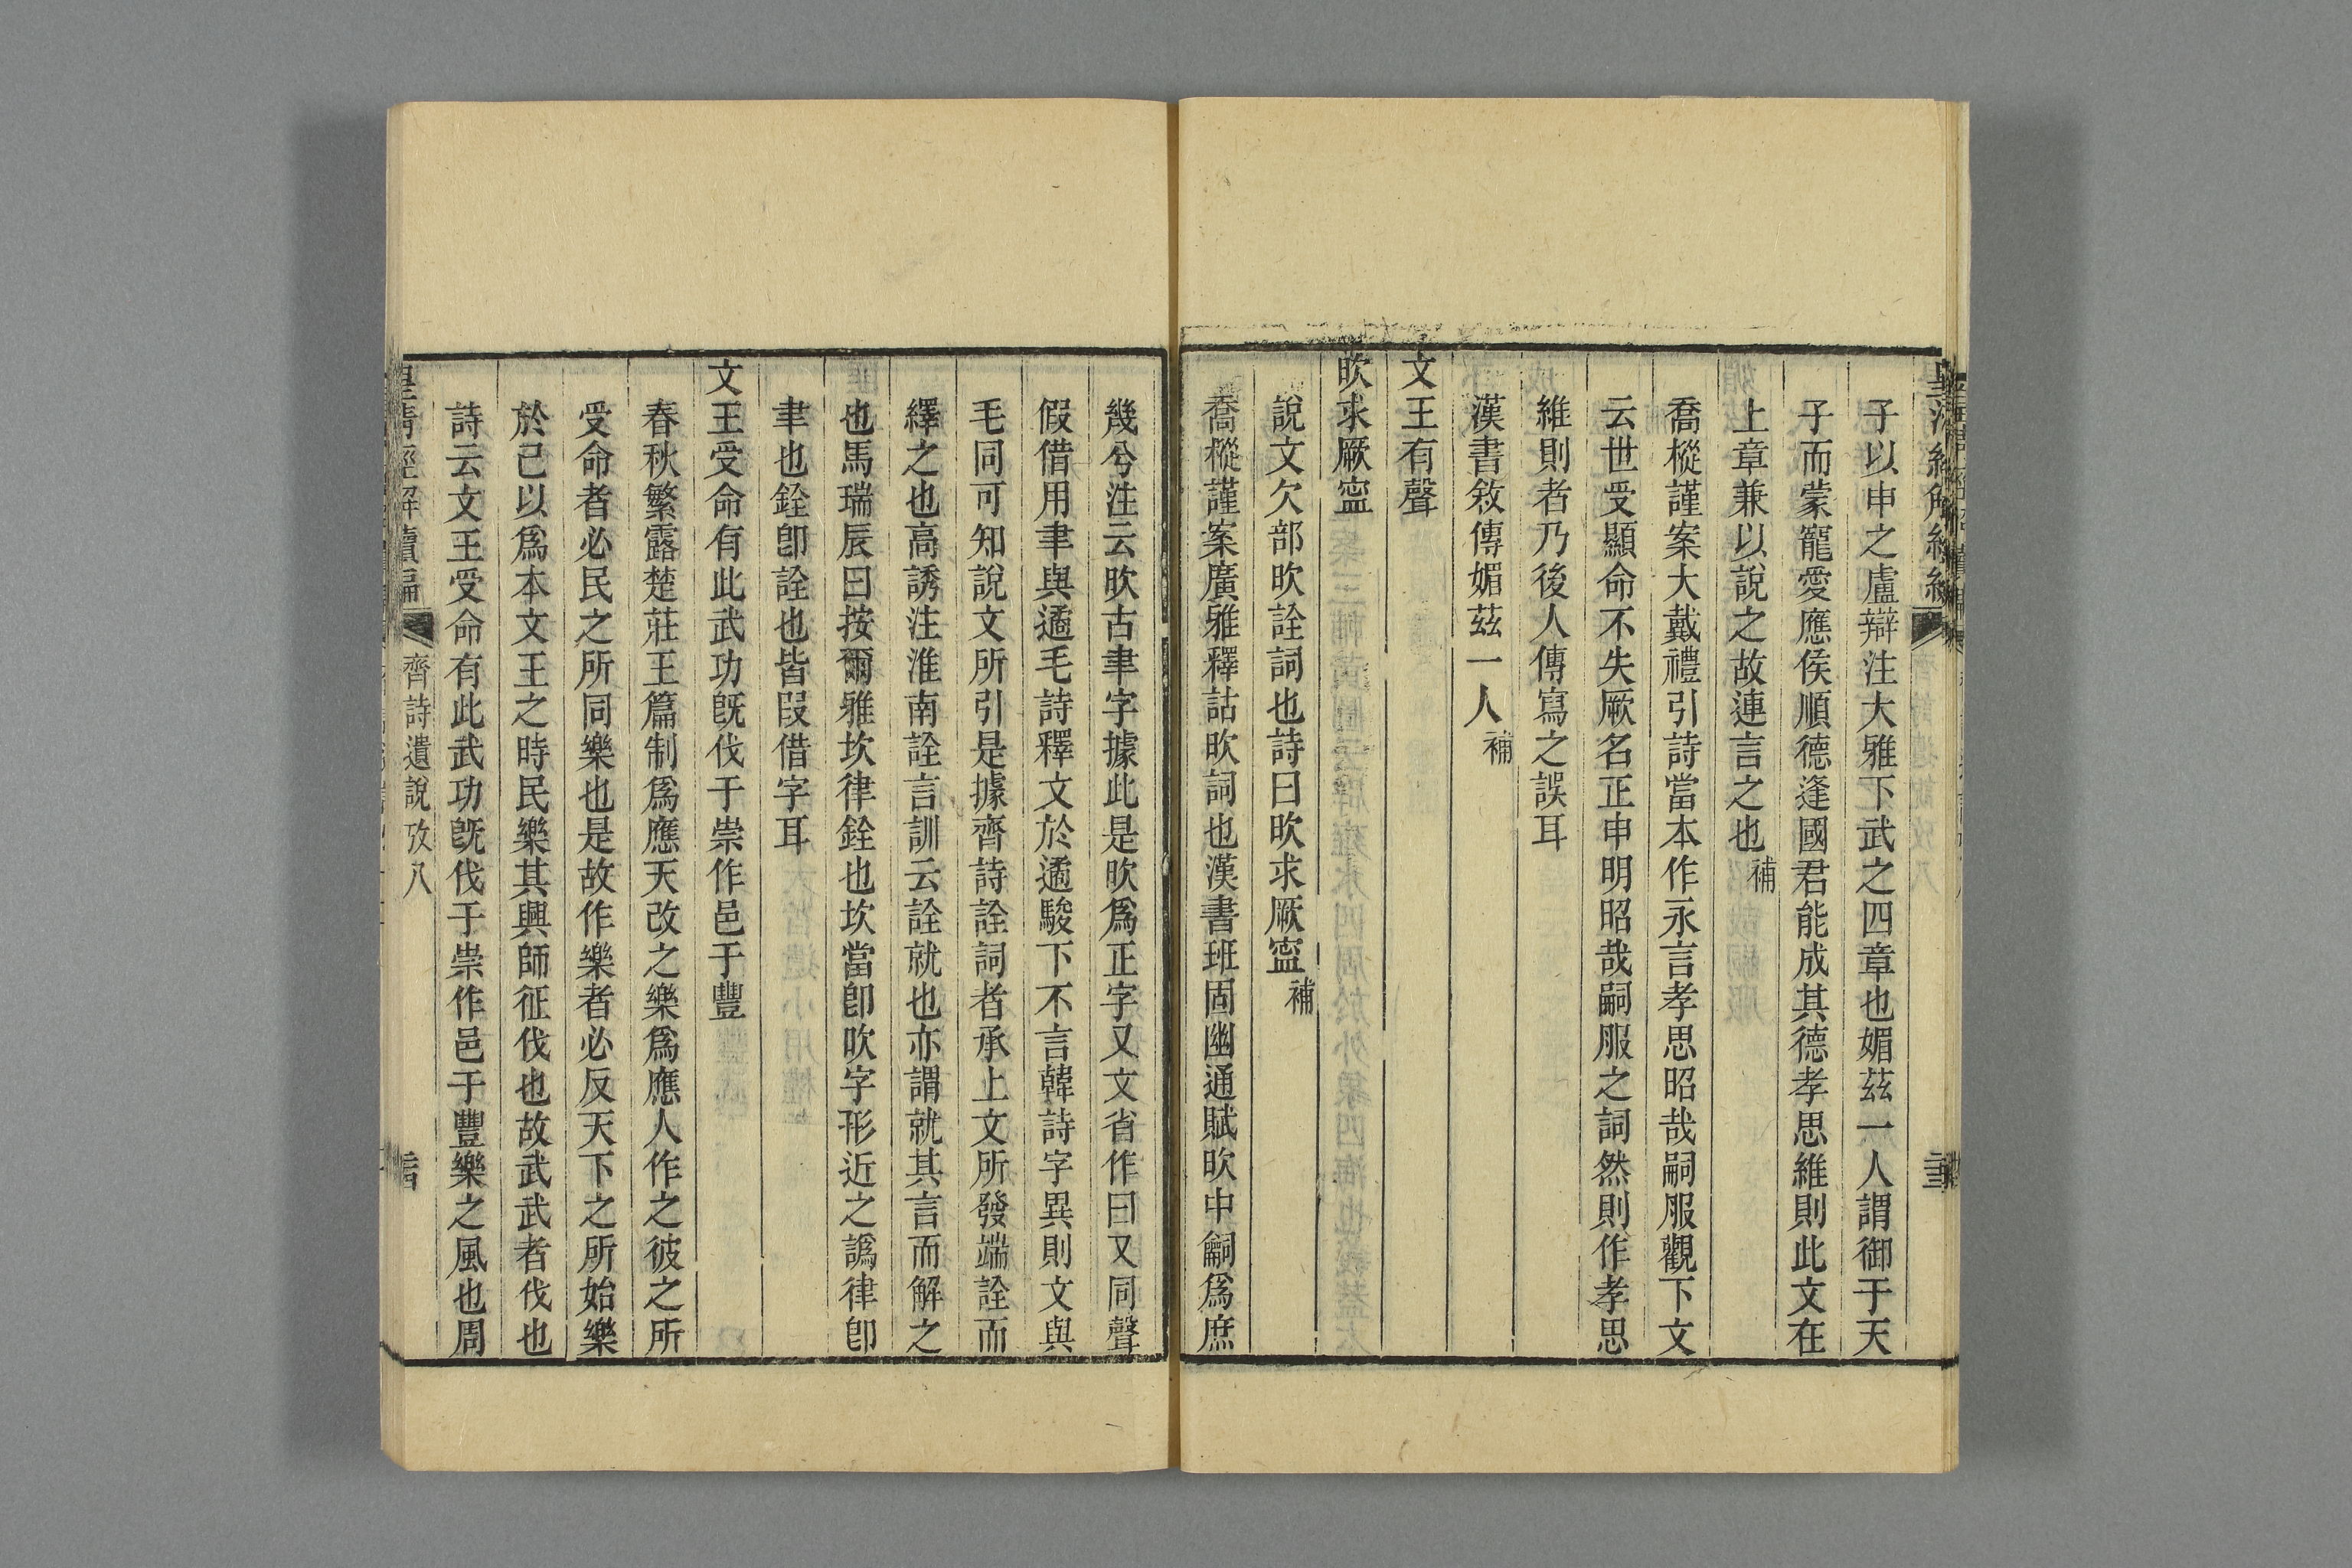 子以申之盧辯注大雅下武之四章也媚茲一人謂御于天
子而蒙寵愛應侯順德逢國君能成其德孝思維則此文在
上章兼以說之故連言之也補
喬樅謹案大戴禮引詩當本作永言孝思昭哉嗣服觀下文
云世受顯命不失厥名正申明昭哉嗣服之詞然則作孝思
維則者乃後人傳寫之誤耳
漢書敘傳媚茲一人補
文王有聲
欥求厥寍
說文欠部欥詮詞也詩曰欥求厥寍補
喬樅謹案廣雅釋詁欥詞也漢書班固幽通賦欥中龢爲庶
幾兮注云欥古聿字據此是欥爲正字又文省作曰又同聲
假借用聿與遹毛詩釋文於遹駿下不言韓詩字異則文與
毛同可知說文所引是據齊詩詮詞者承上文所發端詮而
繹之也高誘注淮南詮言訓云詮就也亦謂就其言而解之
也馬瑞辰曰按爾雅坎律銓也坎當卽欥字形近之譌律卽
聿也銓卽詮也皆叚借字耳
文王受命有此武功旣伐于崇作邑于豐
春秋繁露楚莊王篇制爲應天改之樂爲應人作之彼之所
受命者必民之所同樂也是故作樂者必反天下之所始樂
於己以爲本文王之時民樂其興師征伐也故武武者伐也
詩云文王受命有此武功旣伐于崇作邑于豐樂之風也周
皇清經解續編
齊詩遺說攷八